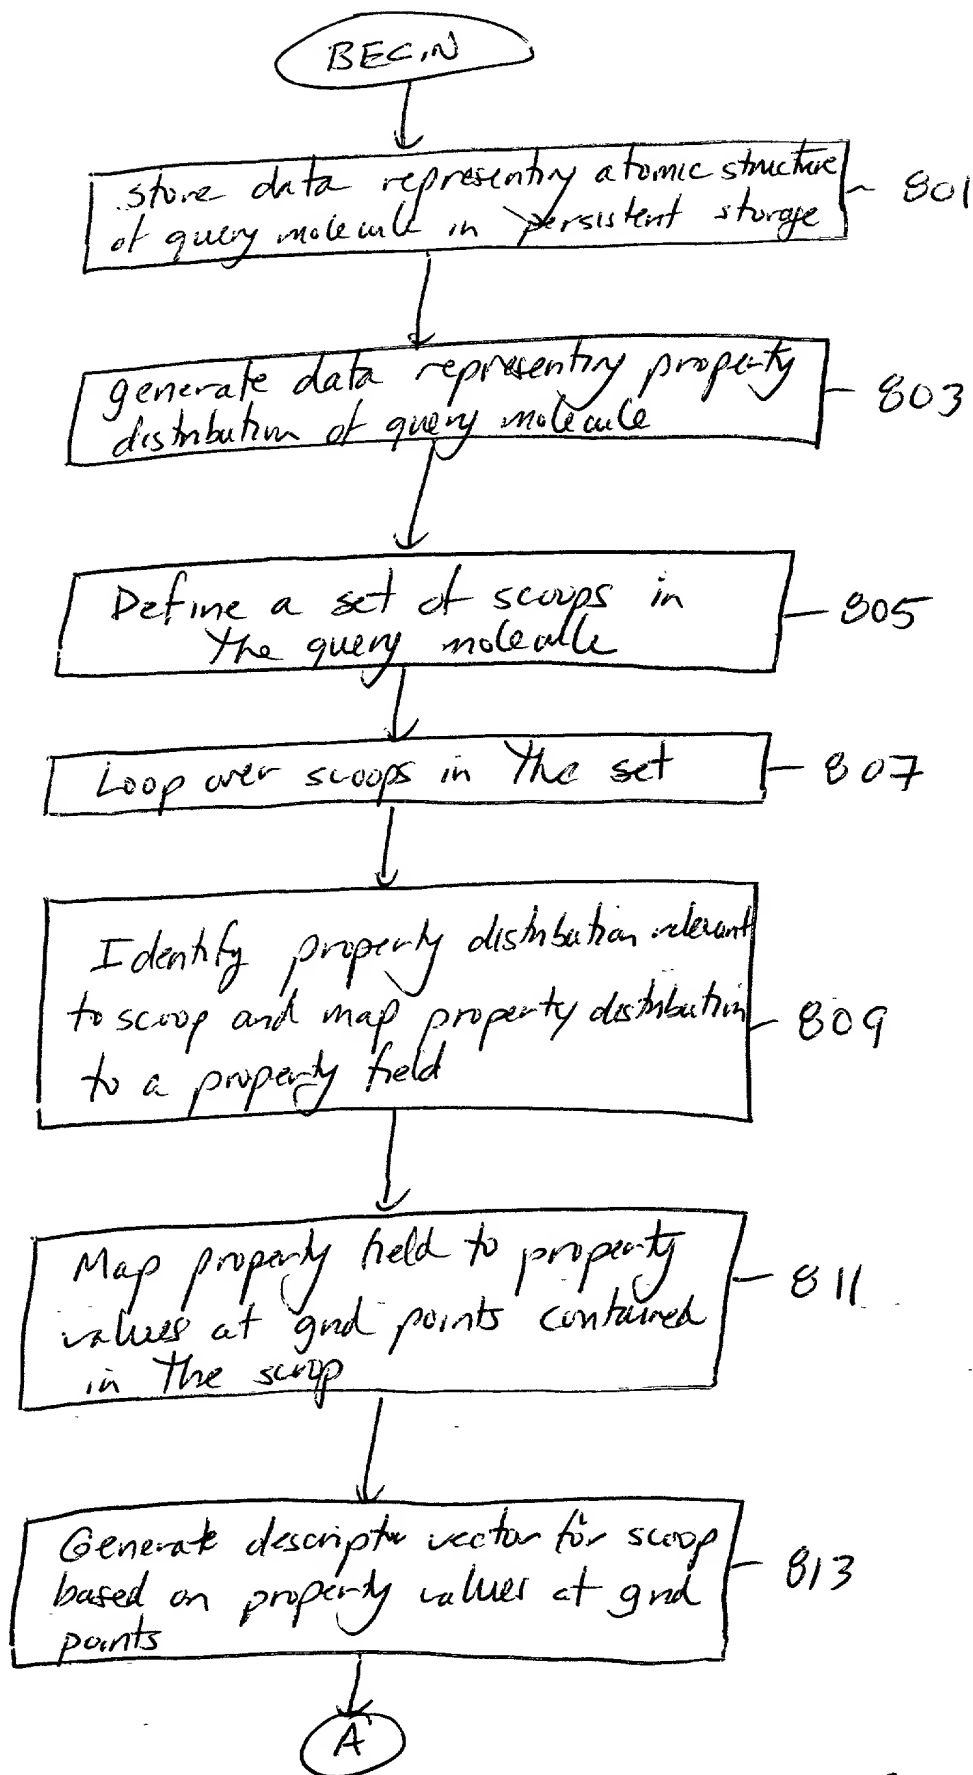 BEGIN
store data representing atomic structure
801
of query molecule in persistent storage
generate data representing property
803
distribution of query molecule
Define a set of scoops in
805
the query molecule
Loop over scoops in the set
807
Identify property distribution relevant
to scoop and map property distribution
809
to a property field
Map property field to property
811
values at grid points contained
in the scoop
Generate descriptor vector for scoop
813
based on property values at grid
points
A